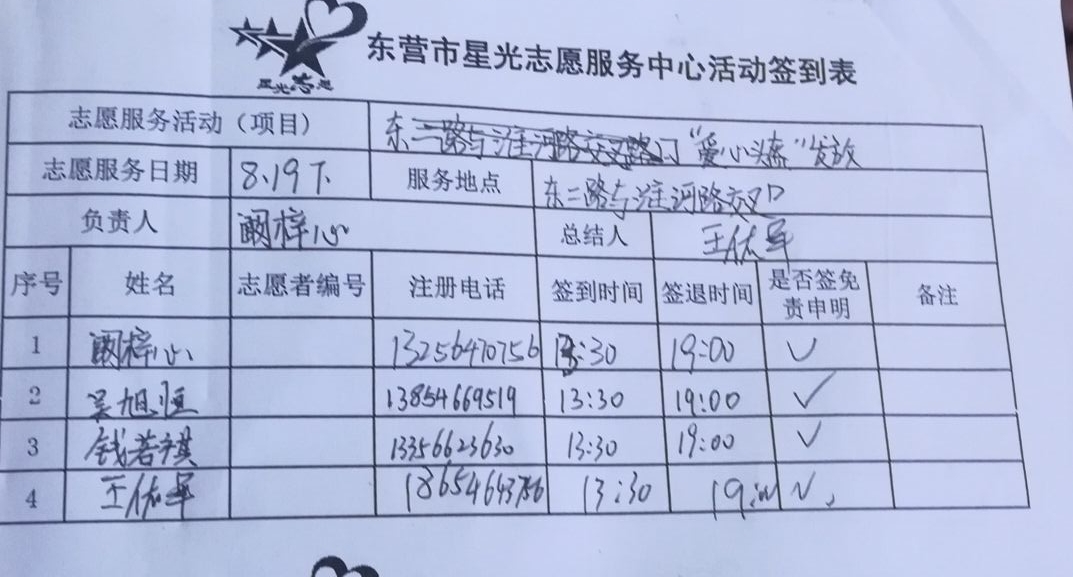 星光志愿
东营市星光志愿服务中心活动签到表
志愿服务活动（项目） 东二路与淮河路交叉路口"爱心头盔"发放
志愿服务日期 8.19下 服务地点 东二路与淮河路交叉口
负责人 阚梓心 总结人 王佑军
序号 姓名 志愿者编号 注册电话 签到时间 签退时间 是否签免责申明 备注
1 阚梓心 13256470756 13:30 19:00 ✓
2 吴旭恒 13854669519 13:30 19:00 ✓
3 钱若祺 13356623630 13:30 19:00 ✓
4 王佑军 18654643756 13:30 19:00 ✓